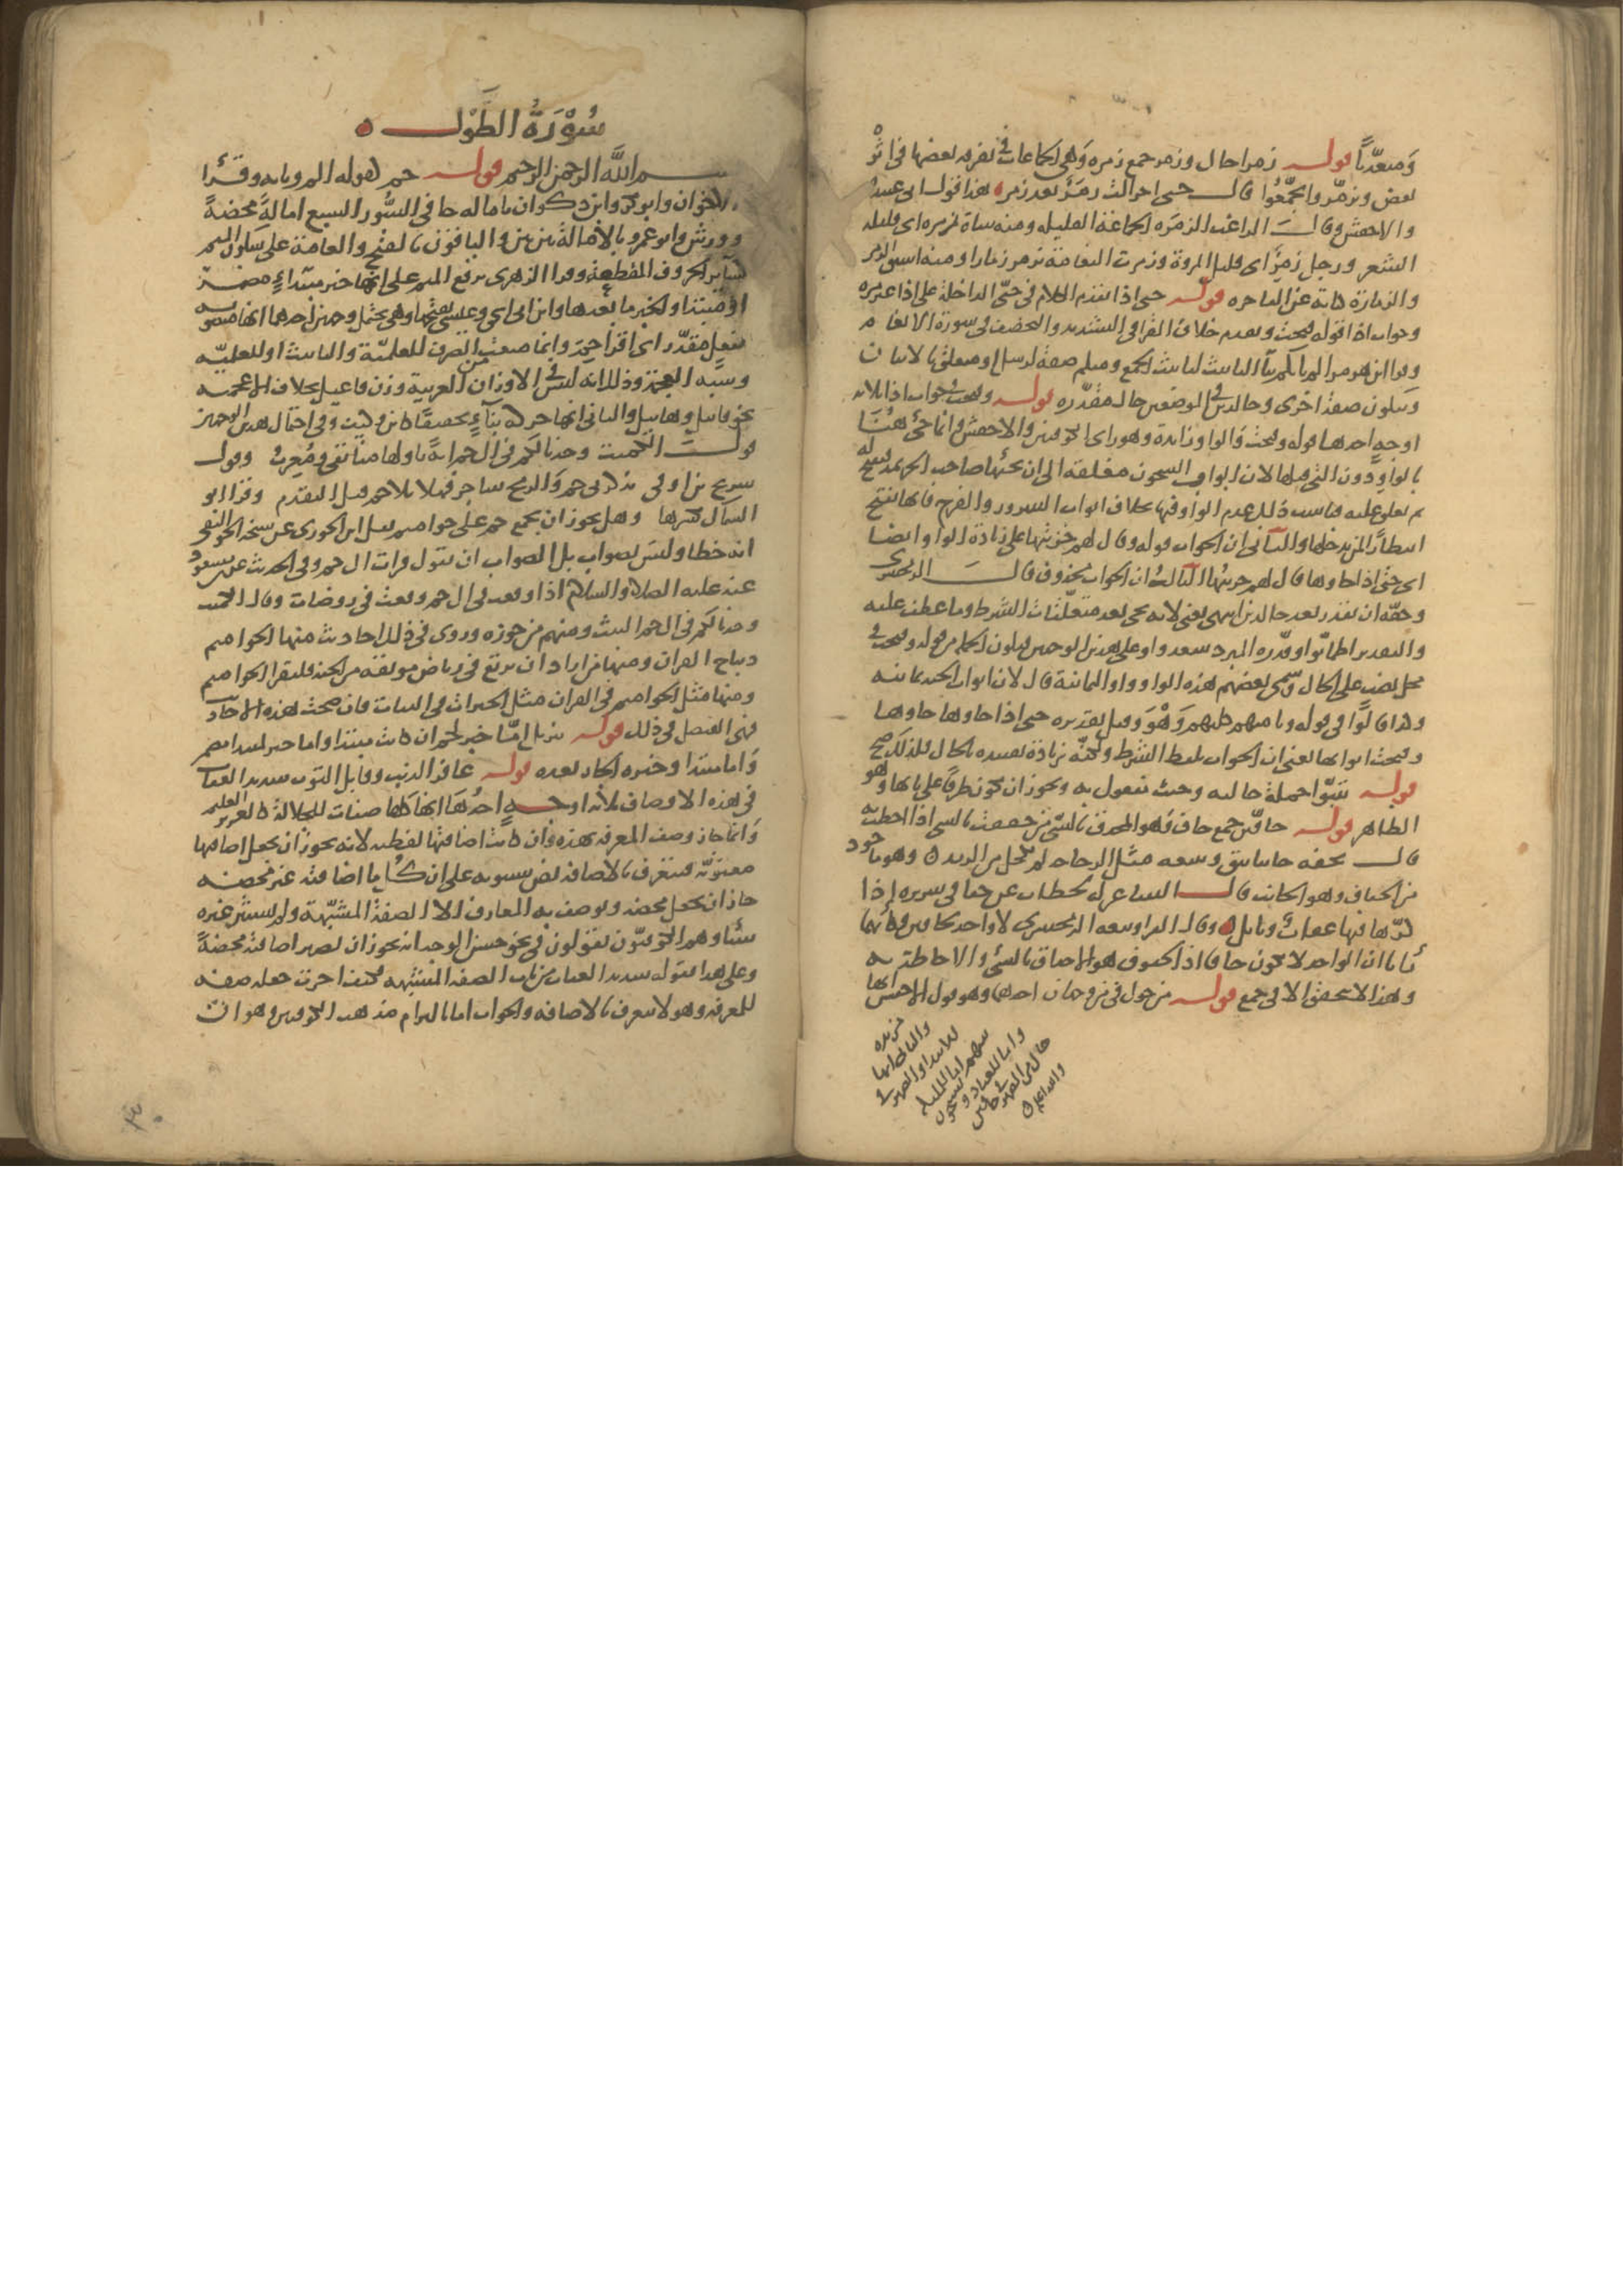 ومتعديا قوله زمرا حال وزمر جمع زمرة وهي الجماعات في تفرقه بعضها في اثر
بعض وتزمروا تجمعوا قال حتى احزألت زمر بعد زمر هذا قول ابي عبيدة
والاخفش وقال الراغب الزمرة الجماعة القليلة ومنه شاة زمرة اى قليلة
الشعر ورجل زمر اى قليل المروة وزمرت النعامة تزمر زمارا ومنه اشتق الزمر
والزمارة كناية عن الفاجرة قوله حتى اذا تقدم الكلام في حتى الداخلة على اذا غير مرة
وجواب اذا قوله فتحت وتقدم خلاف القرا في التشديد والتخفيف في سورة الانعام
وقرا ابن هرمز الم تاتكم بتا التانيث لتانيث الجمع ومنكم صفة لرسل او متعلق بالاتيان
ويتلون صفة اخرى وخالدين في الموضعين حال مقدرة قوله وفتحت في جواب اذا ثلاثة
اوجه احدها قوله وفتحت والواو زايدة وهو راى الكوفيين والاخفش وانما جئ هنا
بالواو دون التي قبلها لان ابواب السجون مغلقة الى ان يجئها صاحب الجريمة فتفتح له
ثم تغلق عليه فناسب ذلك عدم الواو فيها بخلاف ابواب السرور والفرح فانها تفتح
انتظارا لمن يدخلها والثاني ان الجواب قوله وقال لهم خزنتها على زيادة الواو ايضا
اى حتى اذا جاوها قال لهم خزنتها الثالث ان الجواب محذوف قال الزمخشرى
وحقه ان يقدر بعد خالدين انتهى يعني لانه يجي بعد متعلقات الشرط وما عطف عليه
والتقدير اطمانوا وقدره المبرد سعدوا وعلى هذين الوجهين فتكون الجملة من قوله وفتحت في
محل نصب على الحال وسمى بعضهم هذه الواو واو الثمانية قال لان ابواب الجنة ثمانية
وكذا قالوا في قوله وثامنهم كلبهم وقيل تقديره حتى اذا جاوها جاوها
وفتحت ابوابها يعني ان الجواب بلفظ الشرط ولكنه بزيادة تقييده بالحال فلذلك صح
قوله نتبوا جملة حالية وحيث مفعول به ويجوز ان تكون ظرفا على بابها وهو
الظاهر قوله حافين جمع حاف وهو المحدق بالشئ من حففت بالشئ اذا احطت به
قال يحفه جانبا نيق ويتبعه مثل الزجاجة لم تكحل من الرمد وهو ماخوذ
من الحفاف وهو الجانب قال الشاعر له لحظات عن حفافى سريره اذا
كرها فيها عقاب ونايل وقال الفرا وتبعه الزمخشري لا واحد لحافين وكانهما
رايا ان الواحد لا يكون حافا اذ الحفوف هو الاحداق بالشئ والاحاطة به
وهذا لا يتحقق الا في جمع قوله من حول في من وجهان احدهما وهو قول الاخفش انها
مزيدة
والثاني انها
للابتدا والضمير في
بينهم اما للملائكة
واما للعباد ويسبحون
حال من الضمير في حافين
والله اعلم
سورة الطول
بسم الله الرحمن الرحيم قوله حم كقوله الم وبابه وقرا
الاخوان وابو بكر وابن ذكوان بامالة حا في السور السبع امالة محضة
وورش وابو عمرو بالامالة بين بين والباقون بالفتح والعامة على سكون الميم
كسائر الحروف المقطعة وقرا الزهرى برفع الميم على انها خبر مبتداء مضمر
او مبتدا والخبر ما بعدها وابن ابي اسحق وعيسى بفتحها وهي تحتمل وجهين احدهما انها منصوبه
بفعل مقدر اى اقرا حم وانما منعت من الصرف للعلمية والتانيث او للعلمية
وشبه العجمة وذلك انه ليس في الاوزان العربية وزن فاعيل بخلاف الاعجمية
نحو قابيل وهابيل والثاني انها حركة بناء تخفيفا كاين وكيف وفي احتمال هذين الوجهين
قول الكميت وجدنا لكم في آل حم آية تاولها منا تقي ومعرب وقول
شريح بن اوفى يذكرني حم والرمح شاجر فهلا تلا حم قبل التقدم وقرا ابو
السمال بكسرها وهل يجوز ان تجمع حم على حواميم نقل ابن الجوزى عن شيخه الجواليقى
انه خطا وليس بصواب بل الصواب ان تقول قرات ال حم وفي الحديث عن ابن مسعود
عنه عليه الصلاة والسلام اذا وقعت في ال حم وقعت في روضات وقال الكميت
وجدنا لكم في ال حم البيت ومنهم من جوزه وروى في ذلك احاديث منها الحواميم
ديباج القران ومنها من اراد ان يرتع في رياض مونقة من الجنة فليقرا الحواميم
ومنها مثل الحواميم في القران مثل الحبرات في الثياب فان صحت هذه الاحاديث
فهي الفصل في ذلك قوله تنزيل اما خبر لحم ان كانت مبتدا واما خبر لمبتدا مضمر
واما مبتدا وخبره الجار بعده قوله غافر الذنب وقابل التوب شديد العقاب
في هذه الاوصاف ثلاثة اوجه احدها انها كلها صفات للجلالة كالعزيز العليم
وانما جاز وصف المعرفة بهذه وان كانت اضافتها لفظية لانه يجوز ان تجعل اضافتها
معنوية فتتعرف بالاضافة نص سيبويه على ان كل ما اضافته غير محضة
جاز ان تجعل محضة وتوصف به المعارف الا الصفة المشبهة ولم يستثن غيره
شيئا وهم الكوفيون يقولون في نحو حسن الوجه انه يجوز ان تصير اضافته محضة
وعلى هذا فقوله شديد العقاب من باب الصفة المشبهة فكيف اجزت جعله صفة
للمعرفة وهو لا يتعرف بالاضافة والجواب اما بالتزام مذهب الكوفيين وهو ان